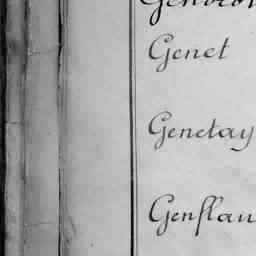 Genet
Genetay
Genflau